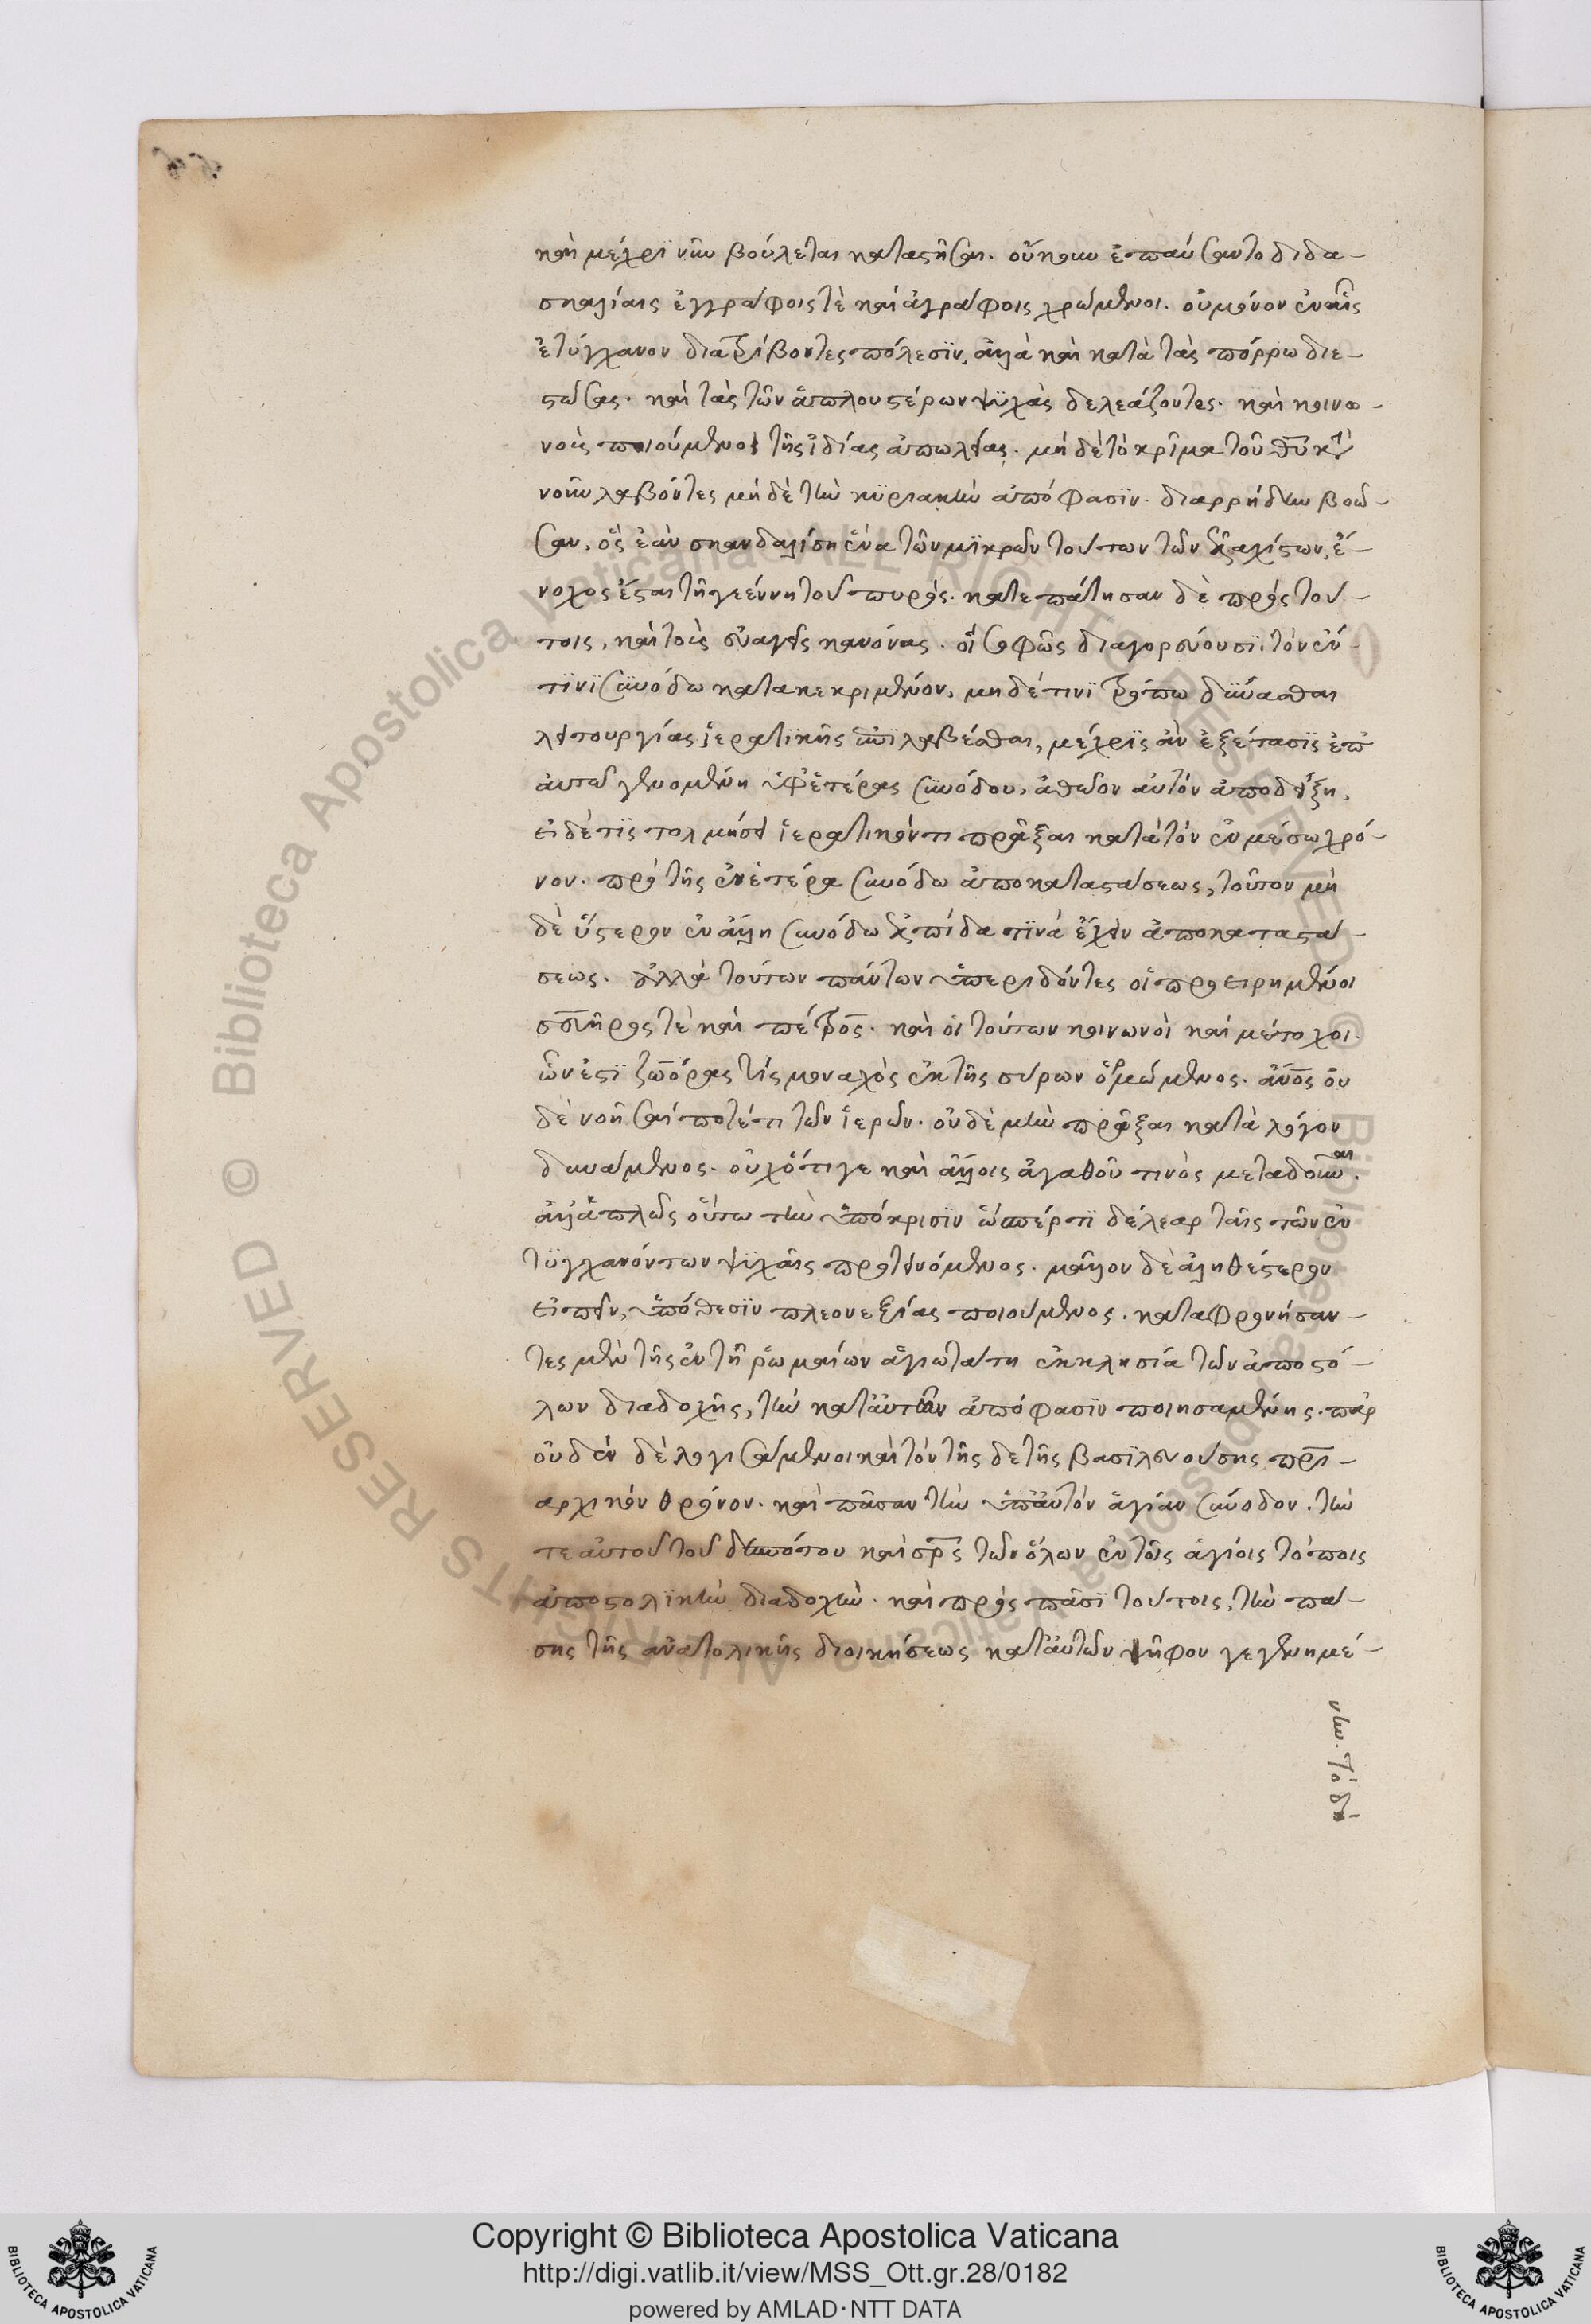 καὶ μέχρι νῦν βούλεται καταστῆσαι. οὔκουν ἐπαύσαντο διδα-
σκαλίαις ἐγγράφοις τὲ καὶ ἀγράφοις χρώμενοι. οὐ μόνον ἐν αἷς
ἐτύγχανον διατρίβοντες πόλεσϊν, ἀλλὰ καὶ κατὰ τὰς πόρρω διε-
στώσας. καὶ τὰς τῶν ἁπλουστέρων ψϋχὰς δελεάζοντες. καὶ κοινω-
νοὺς ποιούμενοι τῆς ἰδίας ἀπωλείας. μὴ δὲ τὸ κρῖμα τοῦ θῡ κατὰ
νοῦν λαβόντες μὴ δὲ τὴν κϋριακὴν ἀπόφασϊν. διαρρήδην βοῶ-
σαν, ὃς ἐὰν σκανδαλίση ἕνα τῶν μϊκρῶν τούτων τῶν ἐλαχίστων, ἔ-
νοχος ἔσται τῆ γεέννη τοῦ πυρός. κατεπάτησαν δὲ πρὸς τού-
τοις, καὶ τοὺς εὐαγεῖς κανόνας. οἳ σαφῶς διαγορεύουσϊ. τὸν ἔν
τϊνϊ συνόδω κατακεκριμένον, μὴ δέ τινϊ τρόπω δύνασθαι
λειτουργίας ἱερατϊκῆς ἐπϊλαβέσθαι, μέχρϊς ἂν ἐξέτασϊς ἐπ'
αυτῶ γενομένη ὑφ' ἑτέρας συνόδου, ἀθῶον αὐτὸν ἀποδείξη.
εἰ δὲ τϊς τολμήσει ἱερατικόν τι πρᾶξαι κατὰ τὸν ἐν μέσω χρό-
νον. πρὸ τῆς ἐν ἑτέρα συνόδω ἀποκαταστάσεως, τοῦτον μὴ
δὲ ὕστερον ἐν ἄλλη συνόδω ἐλπίδα τϊνὰ ἔχειν ἀποκαταστά-
σεως. ἀλλὰ τούτων πάντων ὑπεριδόντες οἱ προειρημένοι
σευῆρος τὲ καὶ πέτρος. καὶ οἱ τούτων κοινωνοὶ καὶ μέτοχοι.
ὧν ἐστϊ ζωόρας τίς μοναχὸς ἐκ τῆς σύρων ὁρμώμενος. ἄνος οὐ
δὲ νοῆσαί ποτέ τι τῶν ἱερῶν. οὐδὲ μὴν πρᾶξαι κατὰ λόγον
δυνάμενος. οὐχ' ὅτι γε καὶ ἄλλοις ἀγαθοῦ τινὸς μεταδοῦναι.
ἀλλ' ἁπλῶς οὕτω τὴν ὑπόκρισϊν ὥσπέρ τϊ δέλεαρ ταῖς τῶν ἐν
τϋγχανόντων ψϋχαῖς προτεινόμενος. μᾶλλον δὲ ἀληθέστερον
εἰπεῖν, ὑπόθεσϊν πλεονεξίας ποιούμενος. καταφρονήσαν-
τες μὲν τῆς ἐν τῆ ῥωμαίων ἁγιωτάτη ἐκκλησία τῶν ἀποστό-
λων διαδοχῆς, τὴν κατ' αὐτῶν ἀπόφασϊν ποιησαμένης. παρ'
οὐδὲν δὲ λογισάμενοι καὶ τὸν τῆς δε τῆς βασϊλευούσης πρι-
αρχικὸν θρόνον. καὶ πᾶσαν τὴν ὑπ' αὐτὸν ἁγίαν σύνοδον. τὴν
τε αὐτοῦ τοῦ δεσπότου καὶ σρς τῶν ὅλων ἐν τοῖς ἁγίοις τόποις
ἀποστολϊκὴν διαδοχὴν. καὶ πρὸς πᾶσϊ τούτοις, τὴν πά-
σης τῆς ἀνατολικῆς διοικήσεως κατ' αὐτῶν ψῆφον γεγενημέ-
νην. τὸ δὲ
Copyright © Biblioteca Apostolica Vaticana
http://digi.vatlib.it/view/MSS_Ott.gr.28/0182
powered by AMLAD·NTT DATA